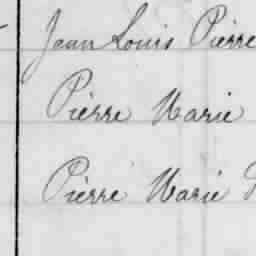 Jean Louis Pierre
Pierre Marie
Pierre Marie